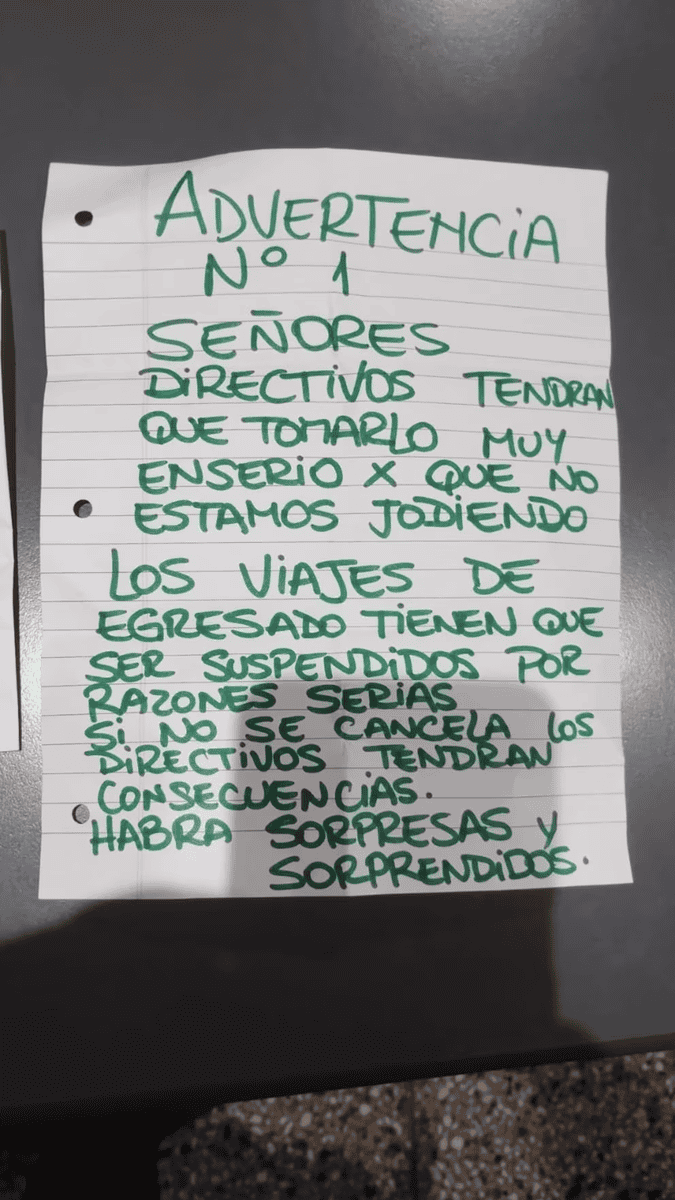 ADVERTENCiA
Nº 1
SEÑORES
DiRECTiVOS TENDRAN
QUE TOMARLO MUY
ENSERIO X QUE NO
ESTAMOS JODiENDO
LOS ViAJES DE
EGRESADO TiENEN QUE
SER SUSPENDiDOS POR
RAZONES SERiAS
Si NO SE CANCELA LOS
DiRECTiVOS TENDRAN
CONSECUENCiAS.
HABRA SORPRESAS y
SORPRENDiDOS.